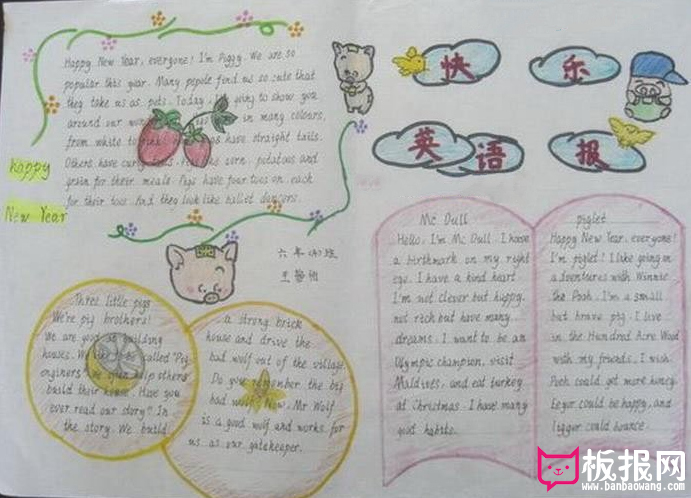 Happy New Year, everyone! I'm Piggy. We are so
popular this year. Many pepole find us so cute that
they take us as pets. Today going to show you
around our in many colours,
from white to have straight tails.
Others have corn, potatoes and
grain for their meals. Pigs have four toes on each
for their toes. And they look like ballet dancers.
Happy
New Year
快乐
英语报
六年(4)班
王
Three little pigs
We're pig brothers!
We are good at building
houses. We called "Pig
enginers" help others
build their house. Have you
ever read our story? In
the story. We build
a strong brick
house and drive the
bad wolf out of the village.
Do you remember the big
bad wolf? Now, Mr Wolf
is a good wolf and works for
us as our gatekeeper.
Mc Dull
Hello, I'm Mc Dull. I have
a birthmark on my right
eye. I have a kind heart.
I'm not clever but happy,
not rich but have many
dreams. I want to be an
Olympic champion, visit
Maldives, and eat turkey
at Christmas. I have many
good habits.
piglet
Happy New Year, everyone!
I'm piglet! I like going on
adventures with Winnie
the Pooh. I'm a small
but brave pig. I live
in the Hundred Acre Wood
with my friends. I wish
Pooh could get more honey,
Eeyor could be happy, and
tigger could bounce.
板报网
www.banbaowang.com